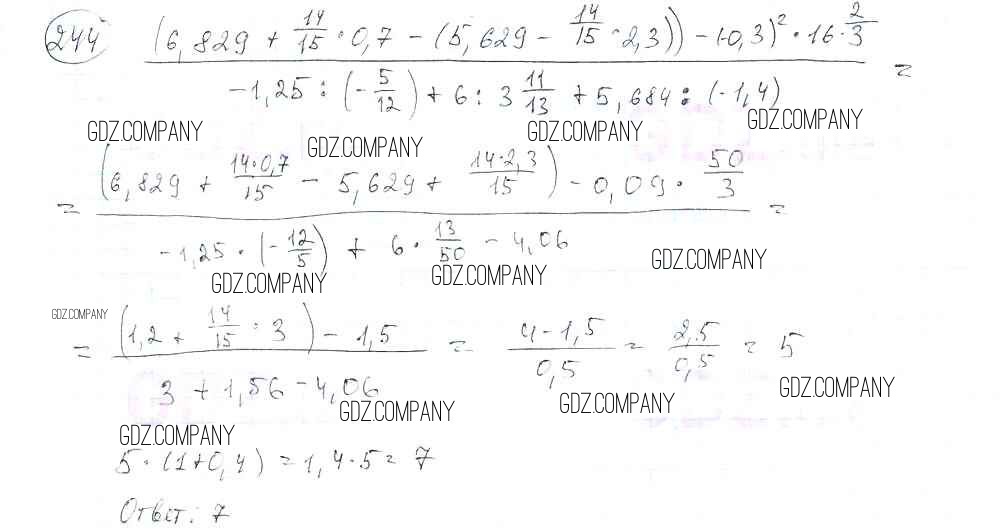 244 (6,829 + 14/15 · 0,7 - (5,629 - 14/15 · 2,3)) - (-0,3)² · 16 · 2/3
-1,25 : (-5/12) + 6 : 3 11/13 + 5,684 : (-1,4) =
GDZ.COMPANY GDZ.COMPANY GDZ.COMPANY GDZ.COMPANY
= (6,829 + 14·0,7/15 - 5,629 + 14·2,3/15) - 0,09 · 50/3 =
-1,25 · (-12/5) + 6 · 13/50 - 4,06
GDZ.COMPANY GDZ.COMPANY GDZ.COMPANY
GDZ.COMPANY
= (1,2 + 14/15 · 3) - 1,5 / 3 + 1,56 - 4,06 = 4-1,5/0,5 = 2,5/0,5 = 5
GDZ.COMPANY GDZ.COMPANY GDZ.COMPANY GDZ.COMPANY
5 · (1+0,4) = 1,4·5 = 7
Ответ: 7